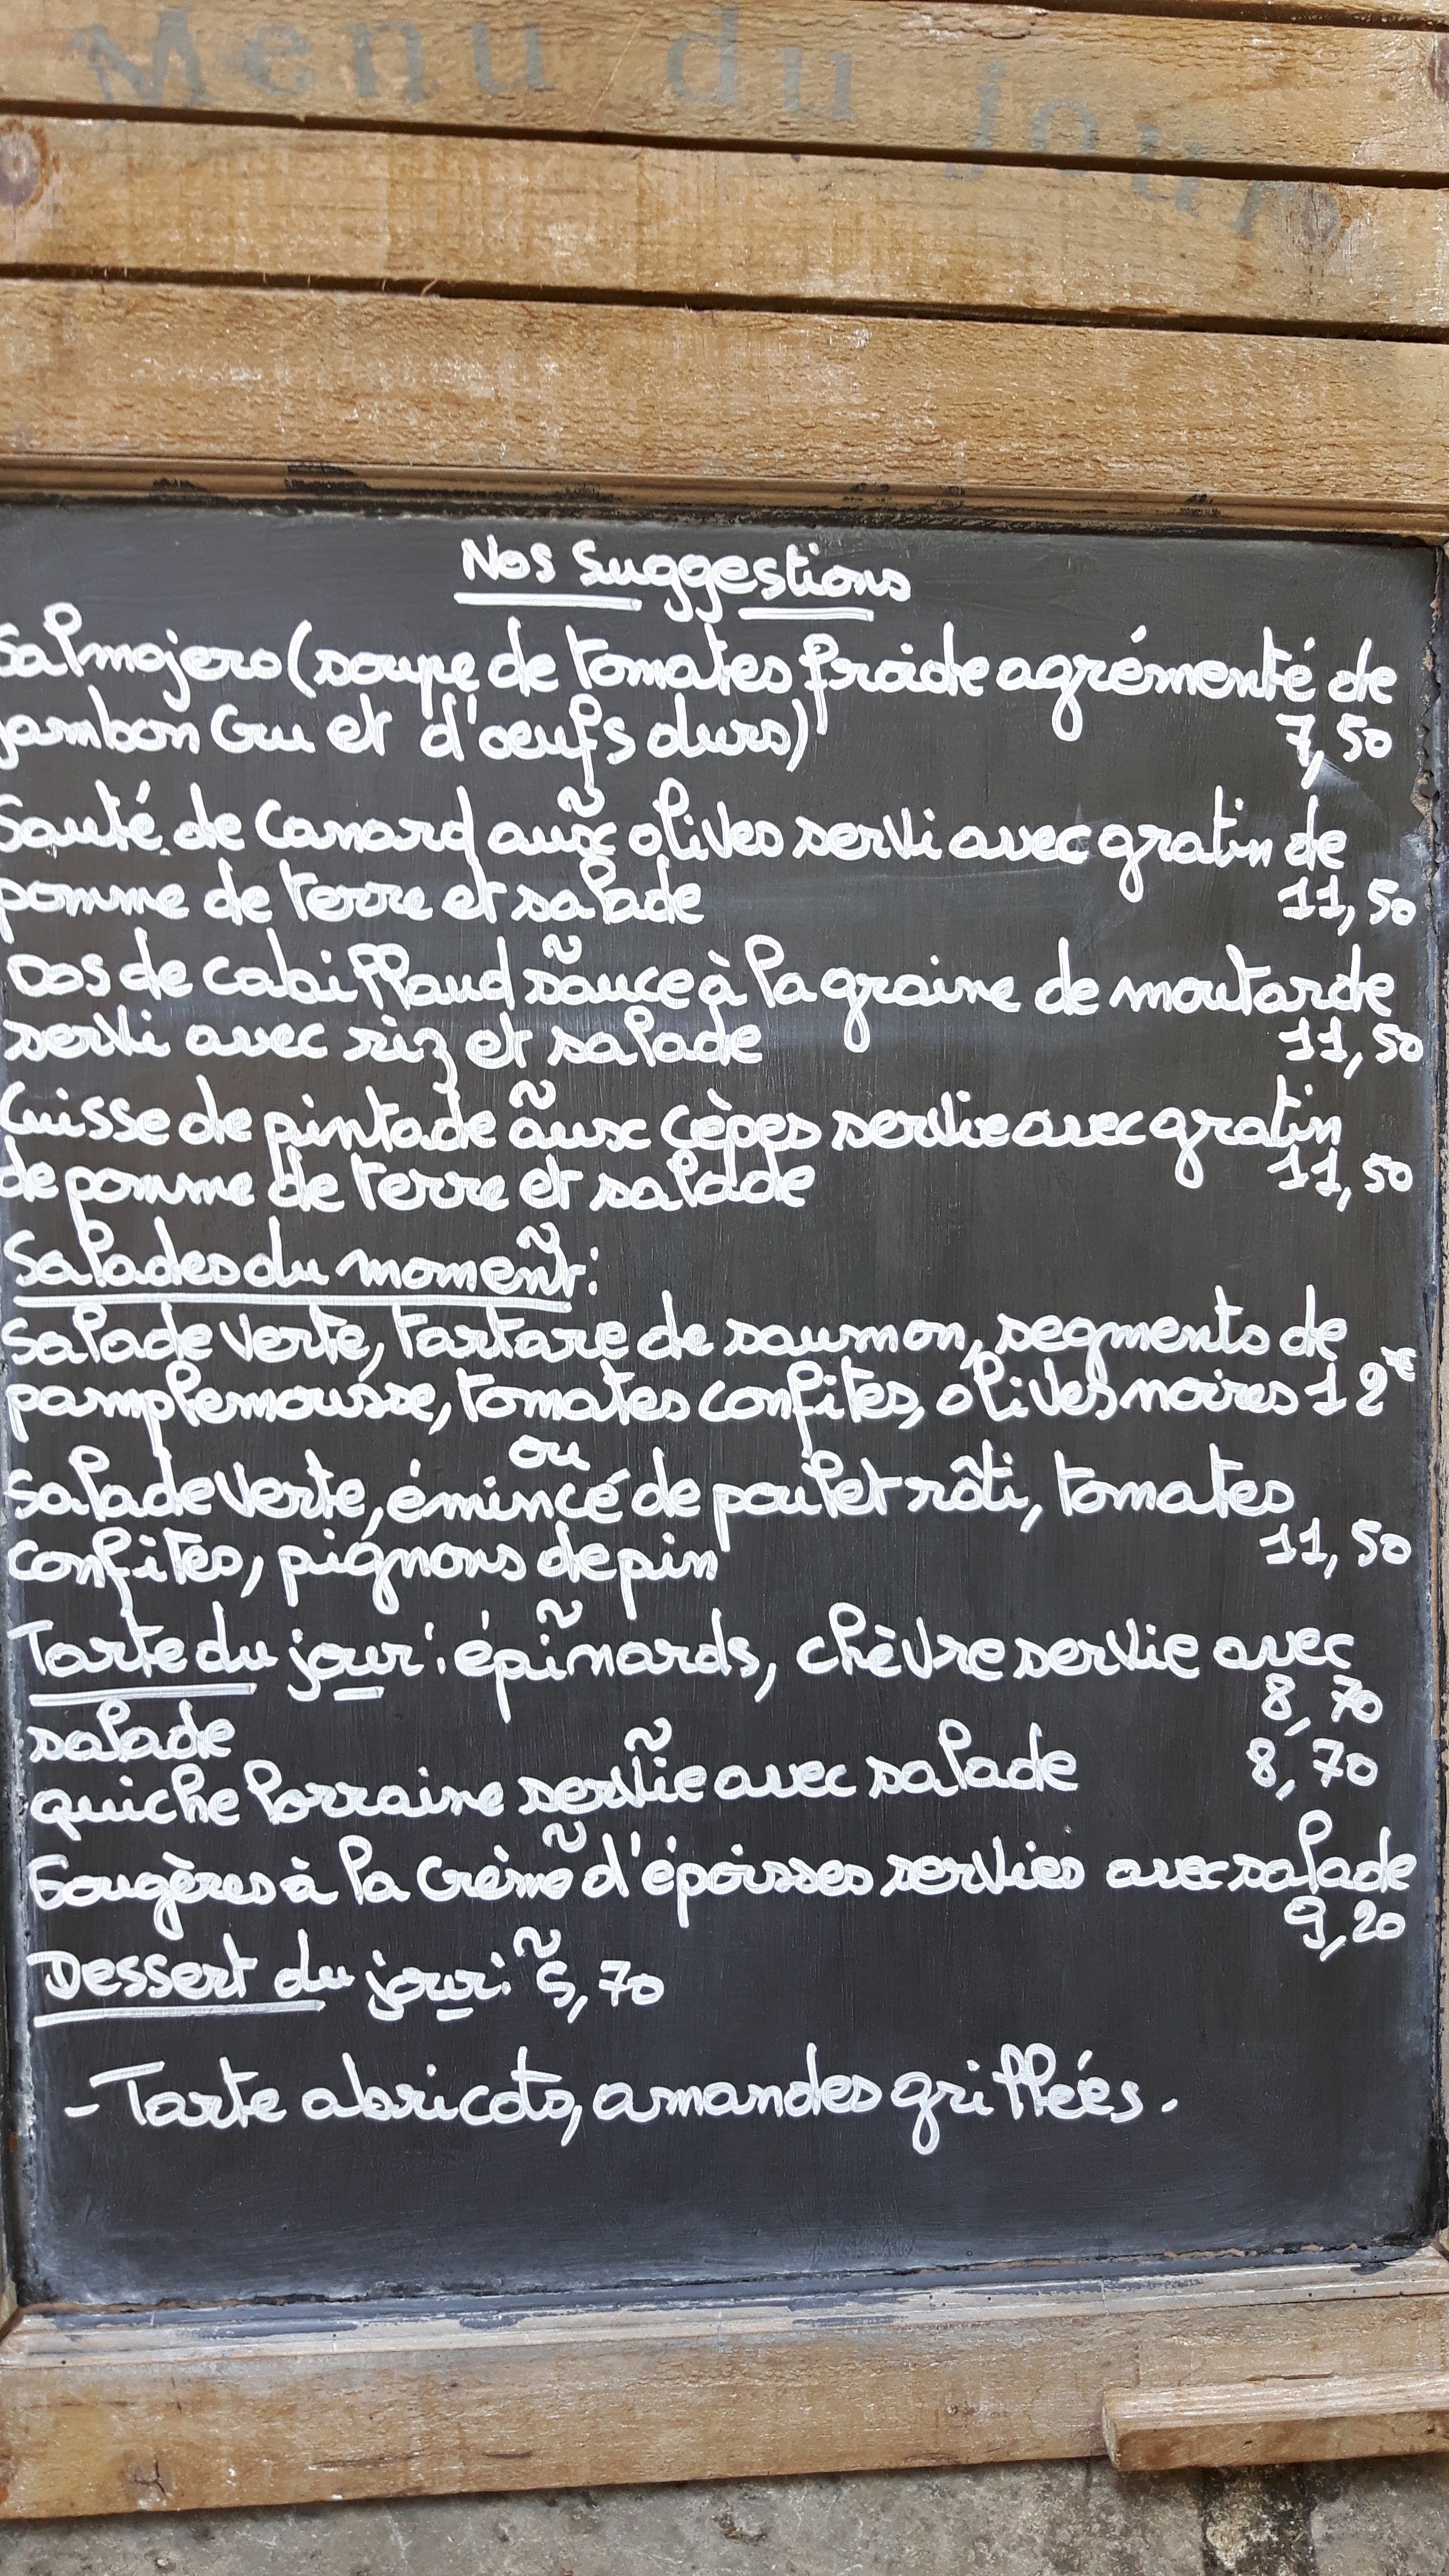 Menu du jour
Nos Suggestions
Salmojero (soupe de tomates froide agrémenté de
jambon Cru et d'oeufs durs) 7,50
~
Sauté de Canard aux olives servi avec gratin de
pomme de terre et salade 11,50
~
Dos de Cabillaud sauce à la graine de moutarde
servi avec riz et salade 11,50
~
Cuisse de pintade aux Cèpes servie avec gratin
de pomme de terre et salade 11,50
~
Salades du moment:
Salade Verte, tartare de saumon, segments de
pamplemousse, tomates confites, olives noires 12€
ou
Salade verte, émincé de poulet rôti, tomates
confites, pignons de pin 11,50
~
Tarte du jour: épinards, chèvre servie avec
salade 8,70
~
quiche lorraine servie avec salade 8,70
~
Gougères à la Crème d'époisses servies avec salade
9,20
~
Dessert du jour: 5,70
- Tarte abricots, amandes grillées.